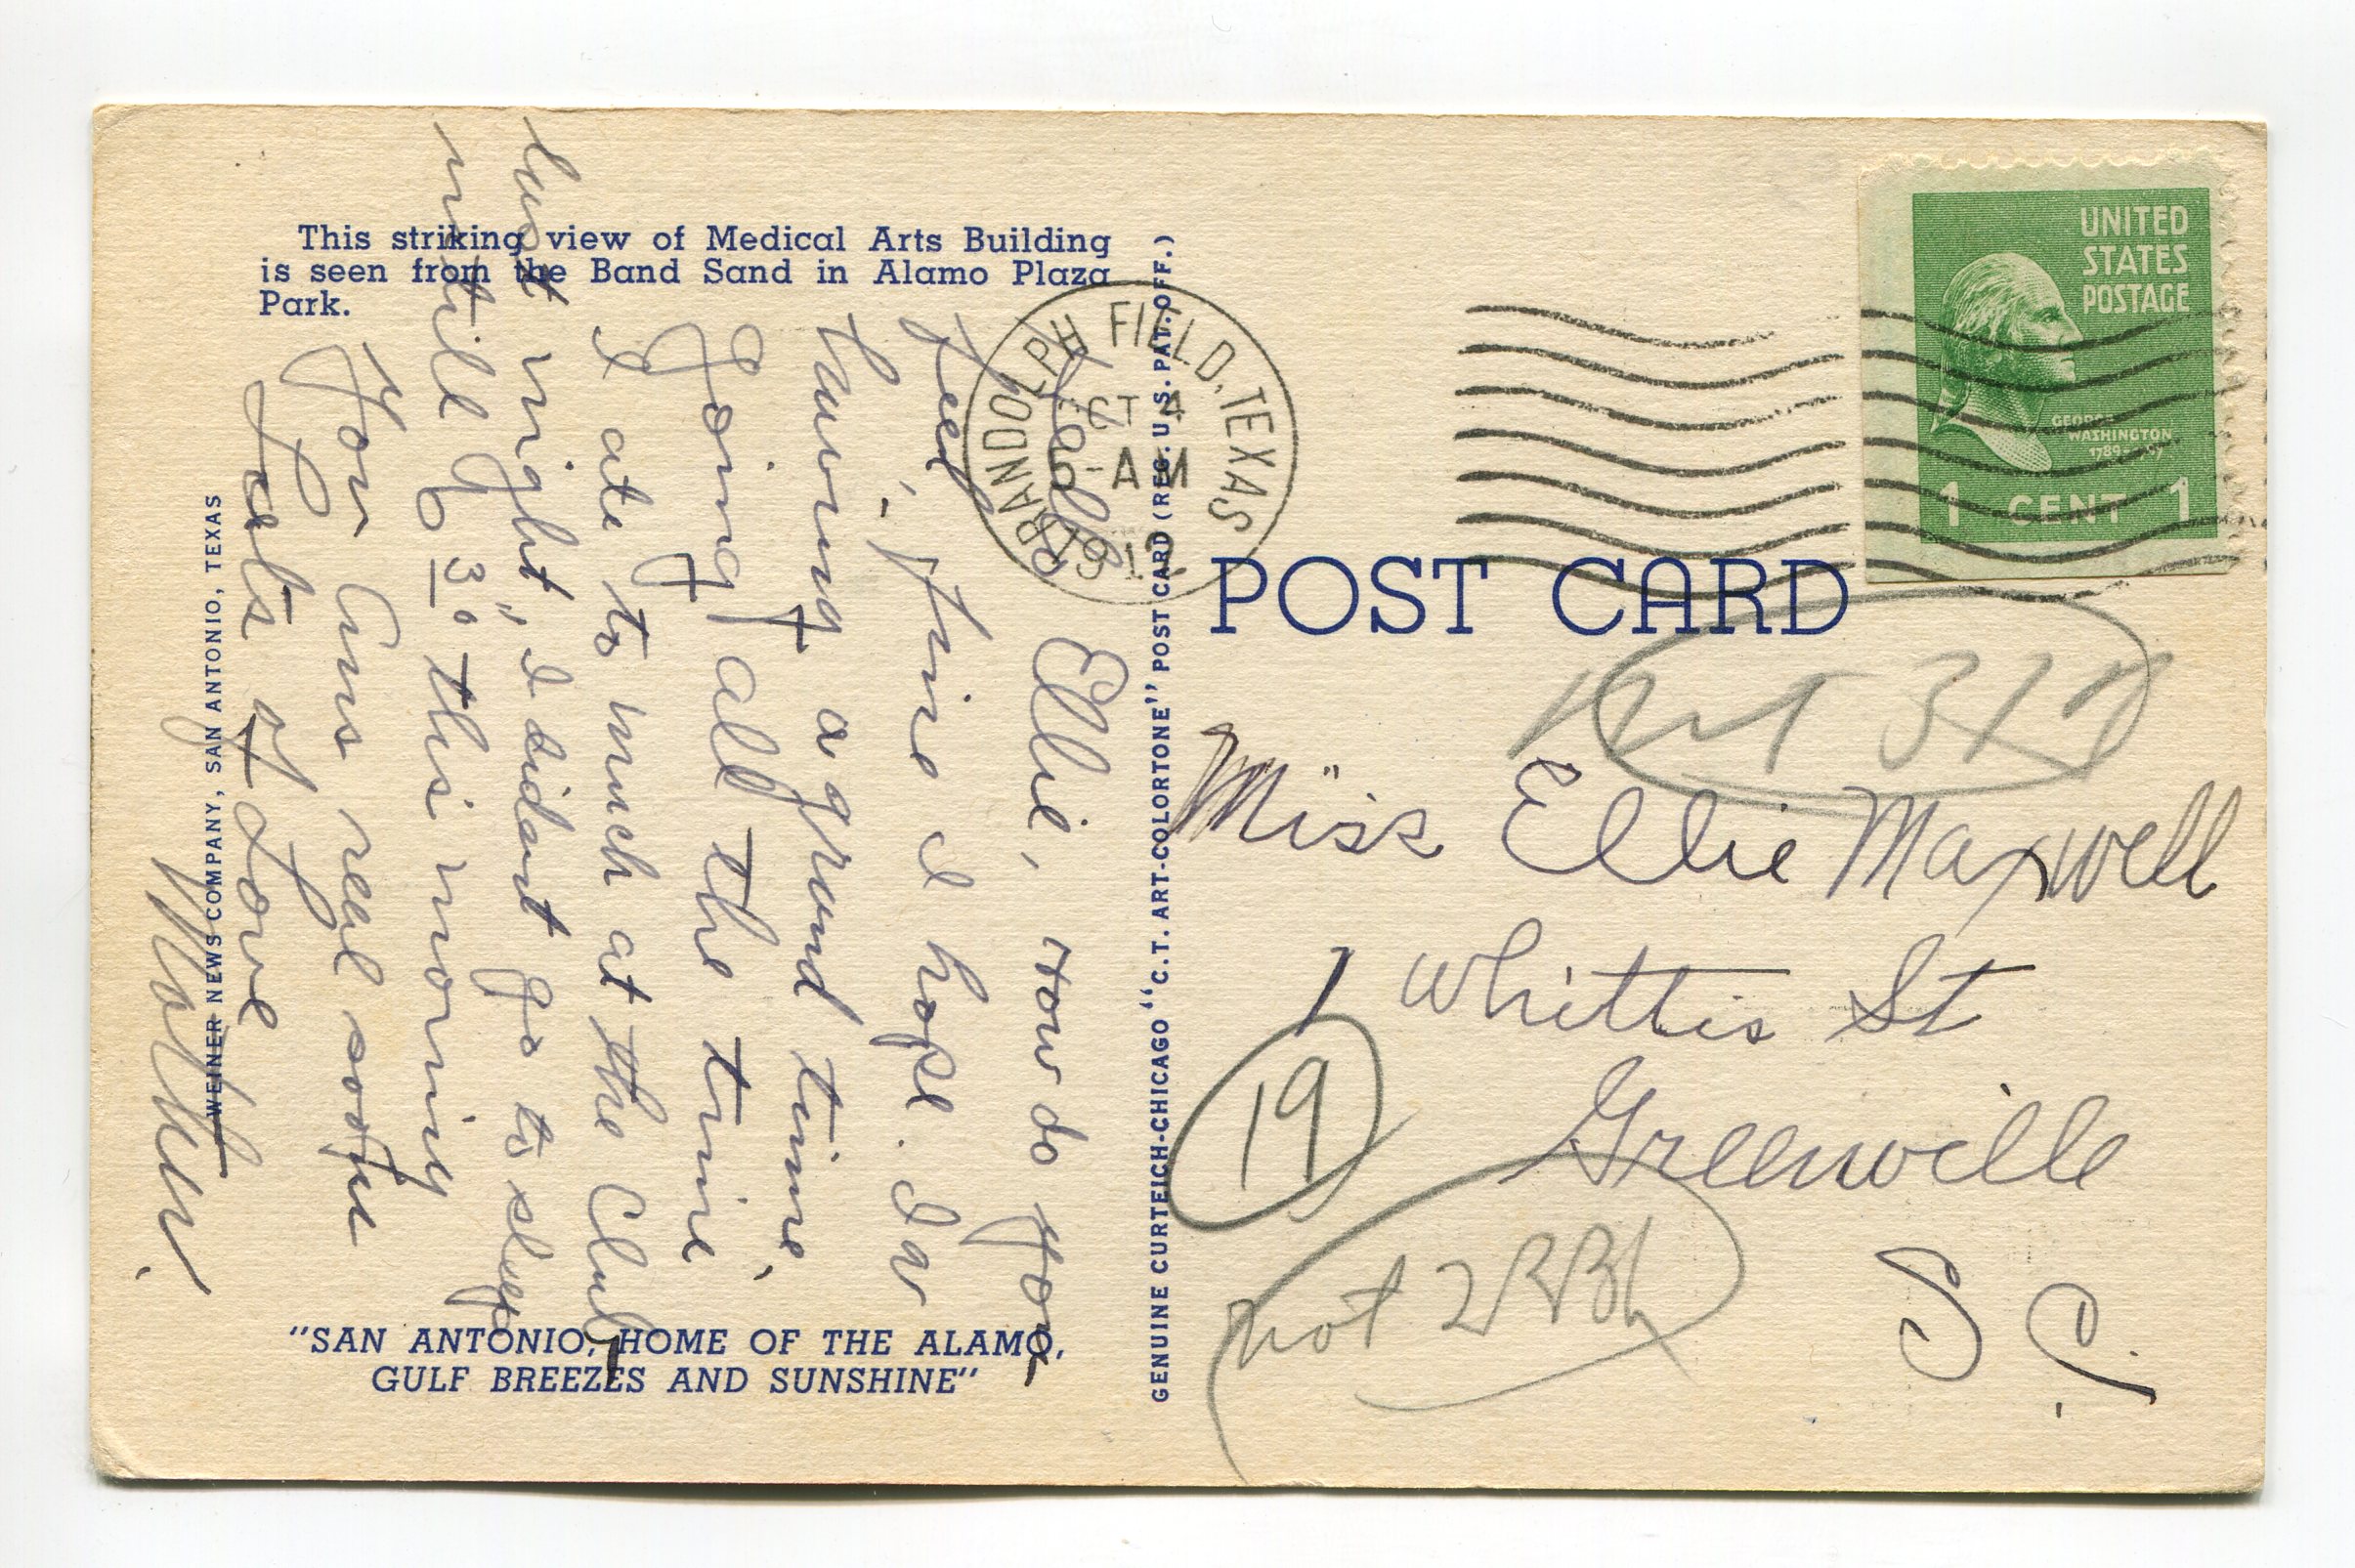 This striking view of Medical Arts Building
is seen from the Band Sand in Alamo Plaza
Park.
Hello Ellie, How do you
feel, - fine I hope. Iv
having a grand time,
Going all the time
I ate to much at the Club
last night", I didant go to sleep
until 6 30 this morning
You Ans real soon
Lots of Love
Mother.
WEINER NEWS COMPANY, SAN ANTONIO, TEXAS
"SAN ANTONIO, HOME OF THE ALAMO,
GULF BREEZES AND SUNSHINE"
GENUINE CURTEICH-CHICAGO "C.T. ART-COLORTONE" POST CARD (REG. U.S. PAT. OFF.)
RANDOLPH FIELD, TEXAS
OCT 4
-AM
UNITED
STATES
POSTAGE
GEORGE
WASHINGTON
1 CENT 1
POST CARD
not
Miss Ellie Maxwell
1 Whittis St
19
Greenville
S C.
not